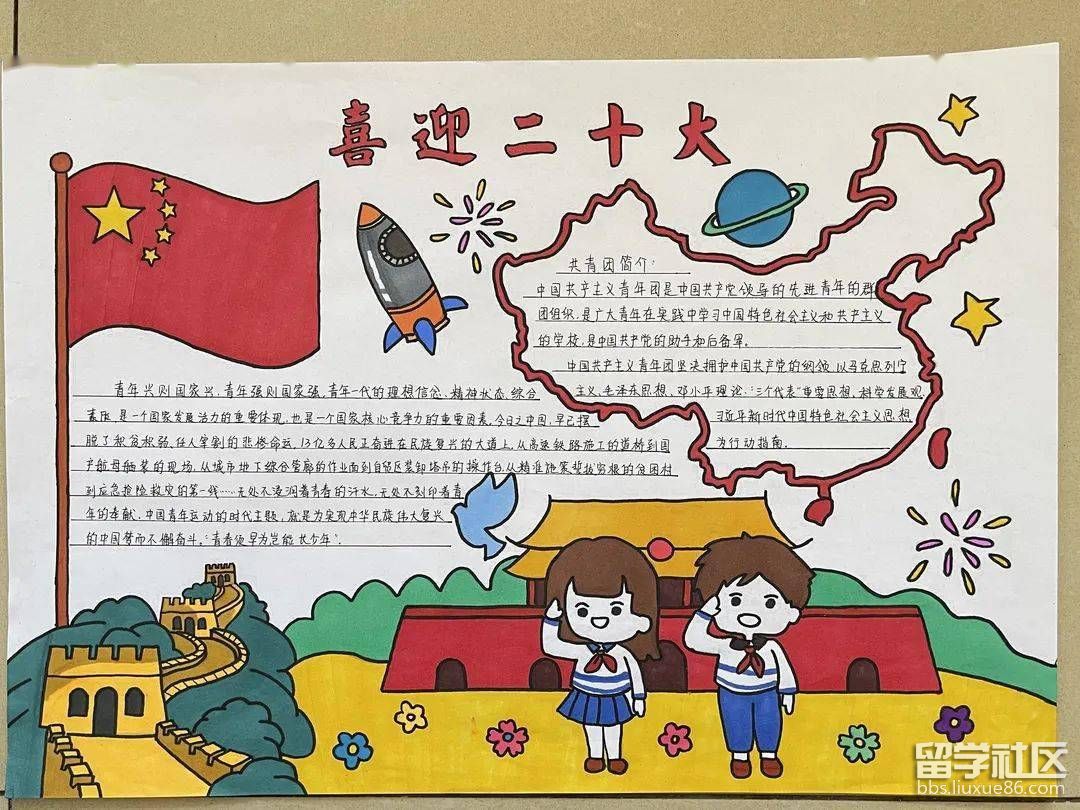 喜迎二十大
共青团简介:
中国共产主义青年团是中国共产党领导的先进青年的群
团组织,是广大青年在实践中学习中国特色社会主义和共产主义
的学校,是中国共产党的助手和后备军。
中国共产主义青年团坚决拥护中国共产党的纲领,以马克思列宁
主义、毛泽东思想、邓小平理论、“三个代表”重要思想、科学发展观、
习近平新时代中国特色社会主义思想
为行动指南。
青年兴则国家兴,青年强则国家强。青年一代的理想信念、精神状态、综合
素质,是一个国家发展活力的重要体现,也是一个国家核心竞争力的重要因素。今日之中国,早已摆
脱了积贫积弱、任人宰割的悲惨命运,13亿多人民正奋进在民族复兴的大道上。从高速铁路施工的道桥到国
产航母舾装的现场,从城市地下综合管廊的作业面到自贸区装卸塔吊的操作台,从精准施策拔穷根的贫困村
到应急抢险救灾的第一线……无处不浸润着青春的汗水,无处不刻印着青
年的奉献。中国青年运动的时代主题,就是为实现中华民族伟大复兴
的中国梦而不懈奋斗。“青春须早为,岂能长少年”.
留学社区
bbs.liuxue86.com